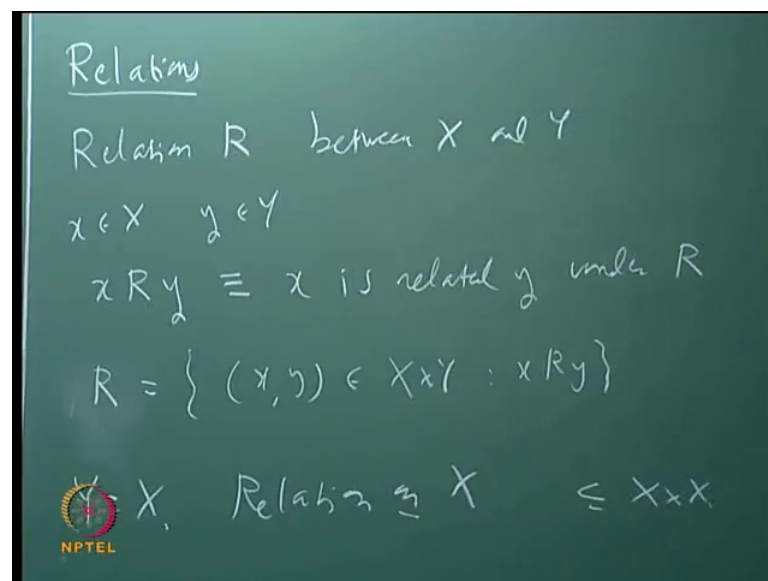 Relations
Relation R between X and Y
x ∈ X y ∈ Y
x R y ≡ x is related y under R
R = { (x, y) ∈ X×Y : x R y }
Y = X, Relation on X ⊆ X×X
NPTEL